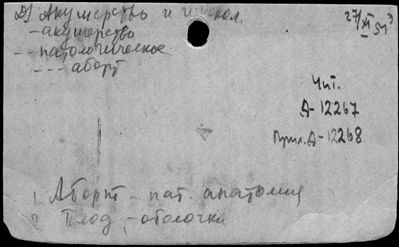 D) Акушерство и гинекол.
- акушерство
- - патологическое
- - - аборт
27/XI 54
Чит.
Д-12267
Прил. Д-12268
1 Аборт - пат. анатомия
2 Плод, - оболочки